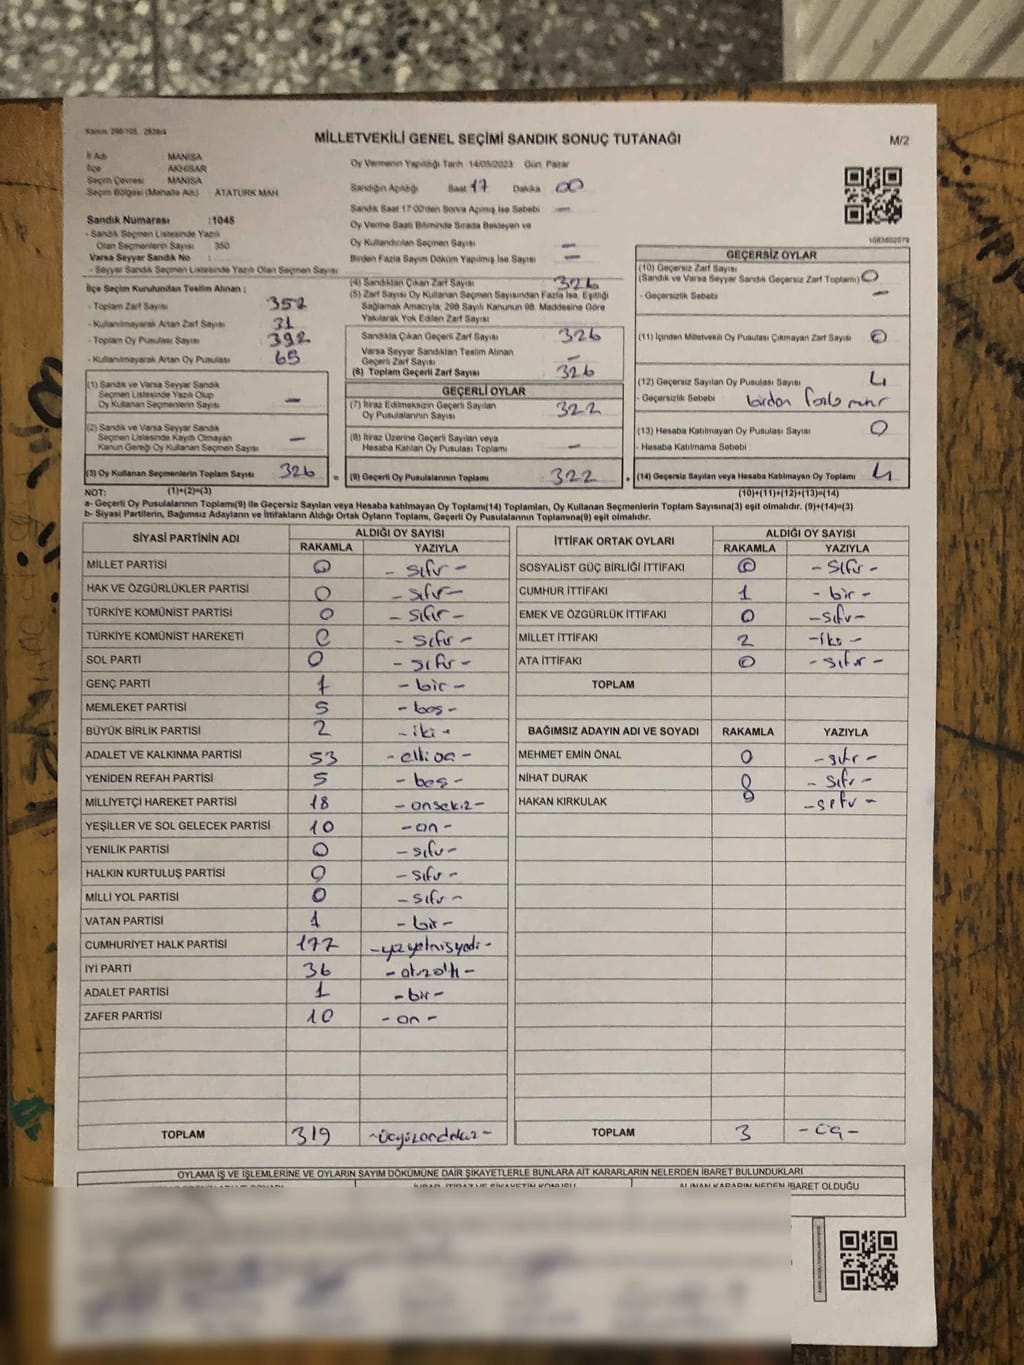 MİLLETVEKİLİ GENEL SEÇİMİ SANDIK SONUÇ TUTANAĞI
M/2
İl Adı MANİSA
İlçe AKHİSAR
Seçim Çevresi MANİSA
Seçim Bölgesi (Mahalle Adı) ATATÜRK MAH
Oy Vermenin Yapıldığı Tarih 14/05/2023 Gün Pazar
Sandığın Açıldığı Saat 17 Dakika 00
Sandık Saat 17:00'den Sonra Açılmış İse Sebebi —
Oy Verme Saati Bitiminde Sırada Bekleyen ve
Oy Kullandırılan Seçmen Sayısı —
Birden Fazla Sayım Döküm Yapılmış İse Sayısı —
Sandık Numarası :1045
- Sandık Seçmen Listesinde Yazılı
Olan Seçmenlerin Sayısı 350
Varsa Seyyar Sandık No :
- Seyyar Sandık Seçmen Listesinde Yazılı Olan Seçmen Sayısı
İlçe Seçim Kurulundan Teslim Alınan ;
- Toplam Zarf Sayısı : 357
- Kullanılmayarak Artan Zarf Sayısı : 31
- Toplam Oy Pusulası Sayısı : 392
- Kullanılmayarak Artan Oy Pusulası : 65
(1) Sandık ve Varsa Seyyar Sandık
Seçmen Listesinde Yazılı Olup
Oy Kullanan Seçmenlerin Sayısı —
(2) Sandık ve Varsa Seyyar Sandık
Seçmen Listesinde Kayıtlı Olmayan
Kanun Gereği Oy Kullanan Seçmen Sayısı —
(3) Oy Kullanan Seçmenlerin Toplam Sayısı 326
(1)+(2)=(3)
(4) Sandıktan Çıkan Zarf Sayısı 326
(5) Zarf Sayısı Oy Kullanan Seçmen Sayısından Fazla İse, Eşitliği
Sağlamak Amacıyla, 298 Sayılı Kanunun 98. Maddesine Göre
Yakılarak Yok Edilen Zarf Sayısı
Sandıkta Çıkan Geçerli Zarf Sayısı 326
Varsa Seyyar Sandıktan Teslim Alınan
Geçerli Zarf Sayısı —
(6) Toplam Geçerli Zarf Sayısı 326
GEÇERLİ OYLAR
(7) İtiraz Edilmeksizin Geçerli Sayılan
Oy Pusulalarının Sayısı 322
(8) İtiraz Üzerine Geçerli Sayılan veya
Hesaba Katılan Oy Pusulası Toplamı —
(9) Geçerli Oy Pusulalarının Toplamı 322
1083802079
GEÇERSİZ OYLAR
(10) Geçersiz Zarf Sayısı
(Sandık ve Varsa Seyyar Sandık Geçersiz Zarf Toplamı) 0
- Geçersizlik Sebebi —
(11) İçinden Milletvekili Oy Pusulası Çıkmayan Zarf Sayısı 0
(12) Geçersiz Sayılan Oy Pusulası Sayısı 4
- Geçersizlik Sebebi birden fazla mühr
(13) Hesaba Katılmayan Oy Pusulası Sayısı 0
- Hesaba Katılmama Sebebi
(14) Geçersiz Sayılan veya Hesaba Katılmayan Oy Toplamı 4
(10)+(11)+(12)+(13)=(14)
NOT:
a- Geçerli Oy Pusulalarının Toplamı(9) ile Geçersiz Sayılan veya Hesaba katılmayan Oy Toplamı(14) Toplamları, Oy Kullanan Seçmenlerin Toplam Sayısına(3) eşit olmalıdır. (9)+(14)=(3)
b- Siyasi Partilerin, Bağımsız Adayların ve İttifakların Aldığı Ortak Oyların Toplamı, Geçerli Oy Pusulalarının Toplamına(9) eşit olmalıdır.
SİYASİ PARTİNİN ADI ALDIĞI OY SAYISI
RAKAMLA YAZIYLA
MİLLET PARTİSİ 0 - sıfır -
HAK VE ÖZGÜRLÜKLER PARTİSİ 0 - sıfır -
TÜRKİYE KOMÜNİST PARTİSİ 0 - sıfır -
TÜRKİYE KOMÜNİST HAREKETİ 0 - sıfır -
SOL PARTİ 0 - sıfır -
GENÇ PARTİ 1 - bir -
MEMLEKET PARTİSİ 5 - beş -
BÜYÜK BİRLİK PARTİSİ 2 - iki -
ADALET VE KALKINMA PARTİSİ 53 - elli üç -
YENİDEN REFAH PARTİSİ 5 - beş -
MİLLİYETÇİ HAREKET PARTİSİ 18 - onsekiz -
YEŞİLLER VE SOL GELECEK PARTİSİ 10 - on -
YENİLİK PARTİSİ 0 - sıfır -
HALKIN KURTULUŞ PARTİSİ 0 - sıfır -
MİLLİ YOL PARTİSİ 0 - sıfır -
VATAN PARTİSİ 1 - bir -
CUMHURİYET HALK PARTİSİ 177 - yüzyetmişyedi -
İYİ PARTİ 36 - otuzaltı -
ADALET PARTİSİ 1 - bir -
ZAFER PARTİSİ 10 - on -
TOPLAM 319 - üçyüzondokuz -
İTTİFAK ORTAK OYLARI ALDIĞI OY SAYISI
RAKAMLA YAZIYLA
SOSYALİST GÜÇ BİRLİĞİ İTTİFAKI 0 - sıfır -
CUMHUR İTTİFAKI 1 - bir -
EMEK VE ÖZGÜRLÜK İTTİFAKI 0 - sıfır -
MİLLET İTTİFAKI 2 - iki -
ATA İTTİFAKI 0 - sıfır -
TOPLAM
BAĞIMSIZ ADAYIN ADI VE SOYADI RAKAMLA YAZIYLA
MEHMET EMİN ÖNAL 0 - sıfır -
NİHAT DURAK 0 - sıfır -
HAKAN KIRKULAK 0 - sıfır -
TOPLAM 3 - üç -
OYLAMA İŞ VE İŞLEMLERİNE VE OYLARIN SAYIM DÖKÜMÜNE DAİR ŞİKAYETLERLE BUNLARA AİT KARARLARIN NELERDEN İBARET BULUNDUKLARI
ALINAN KARARIN NEDEN İBARET OLDUĞU